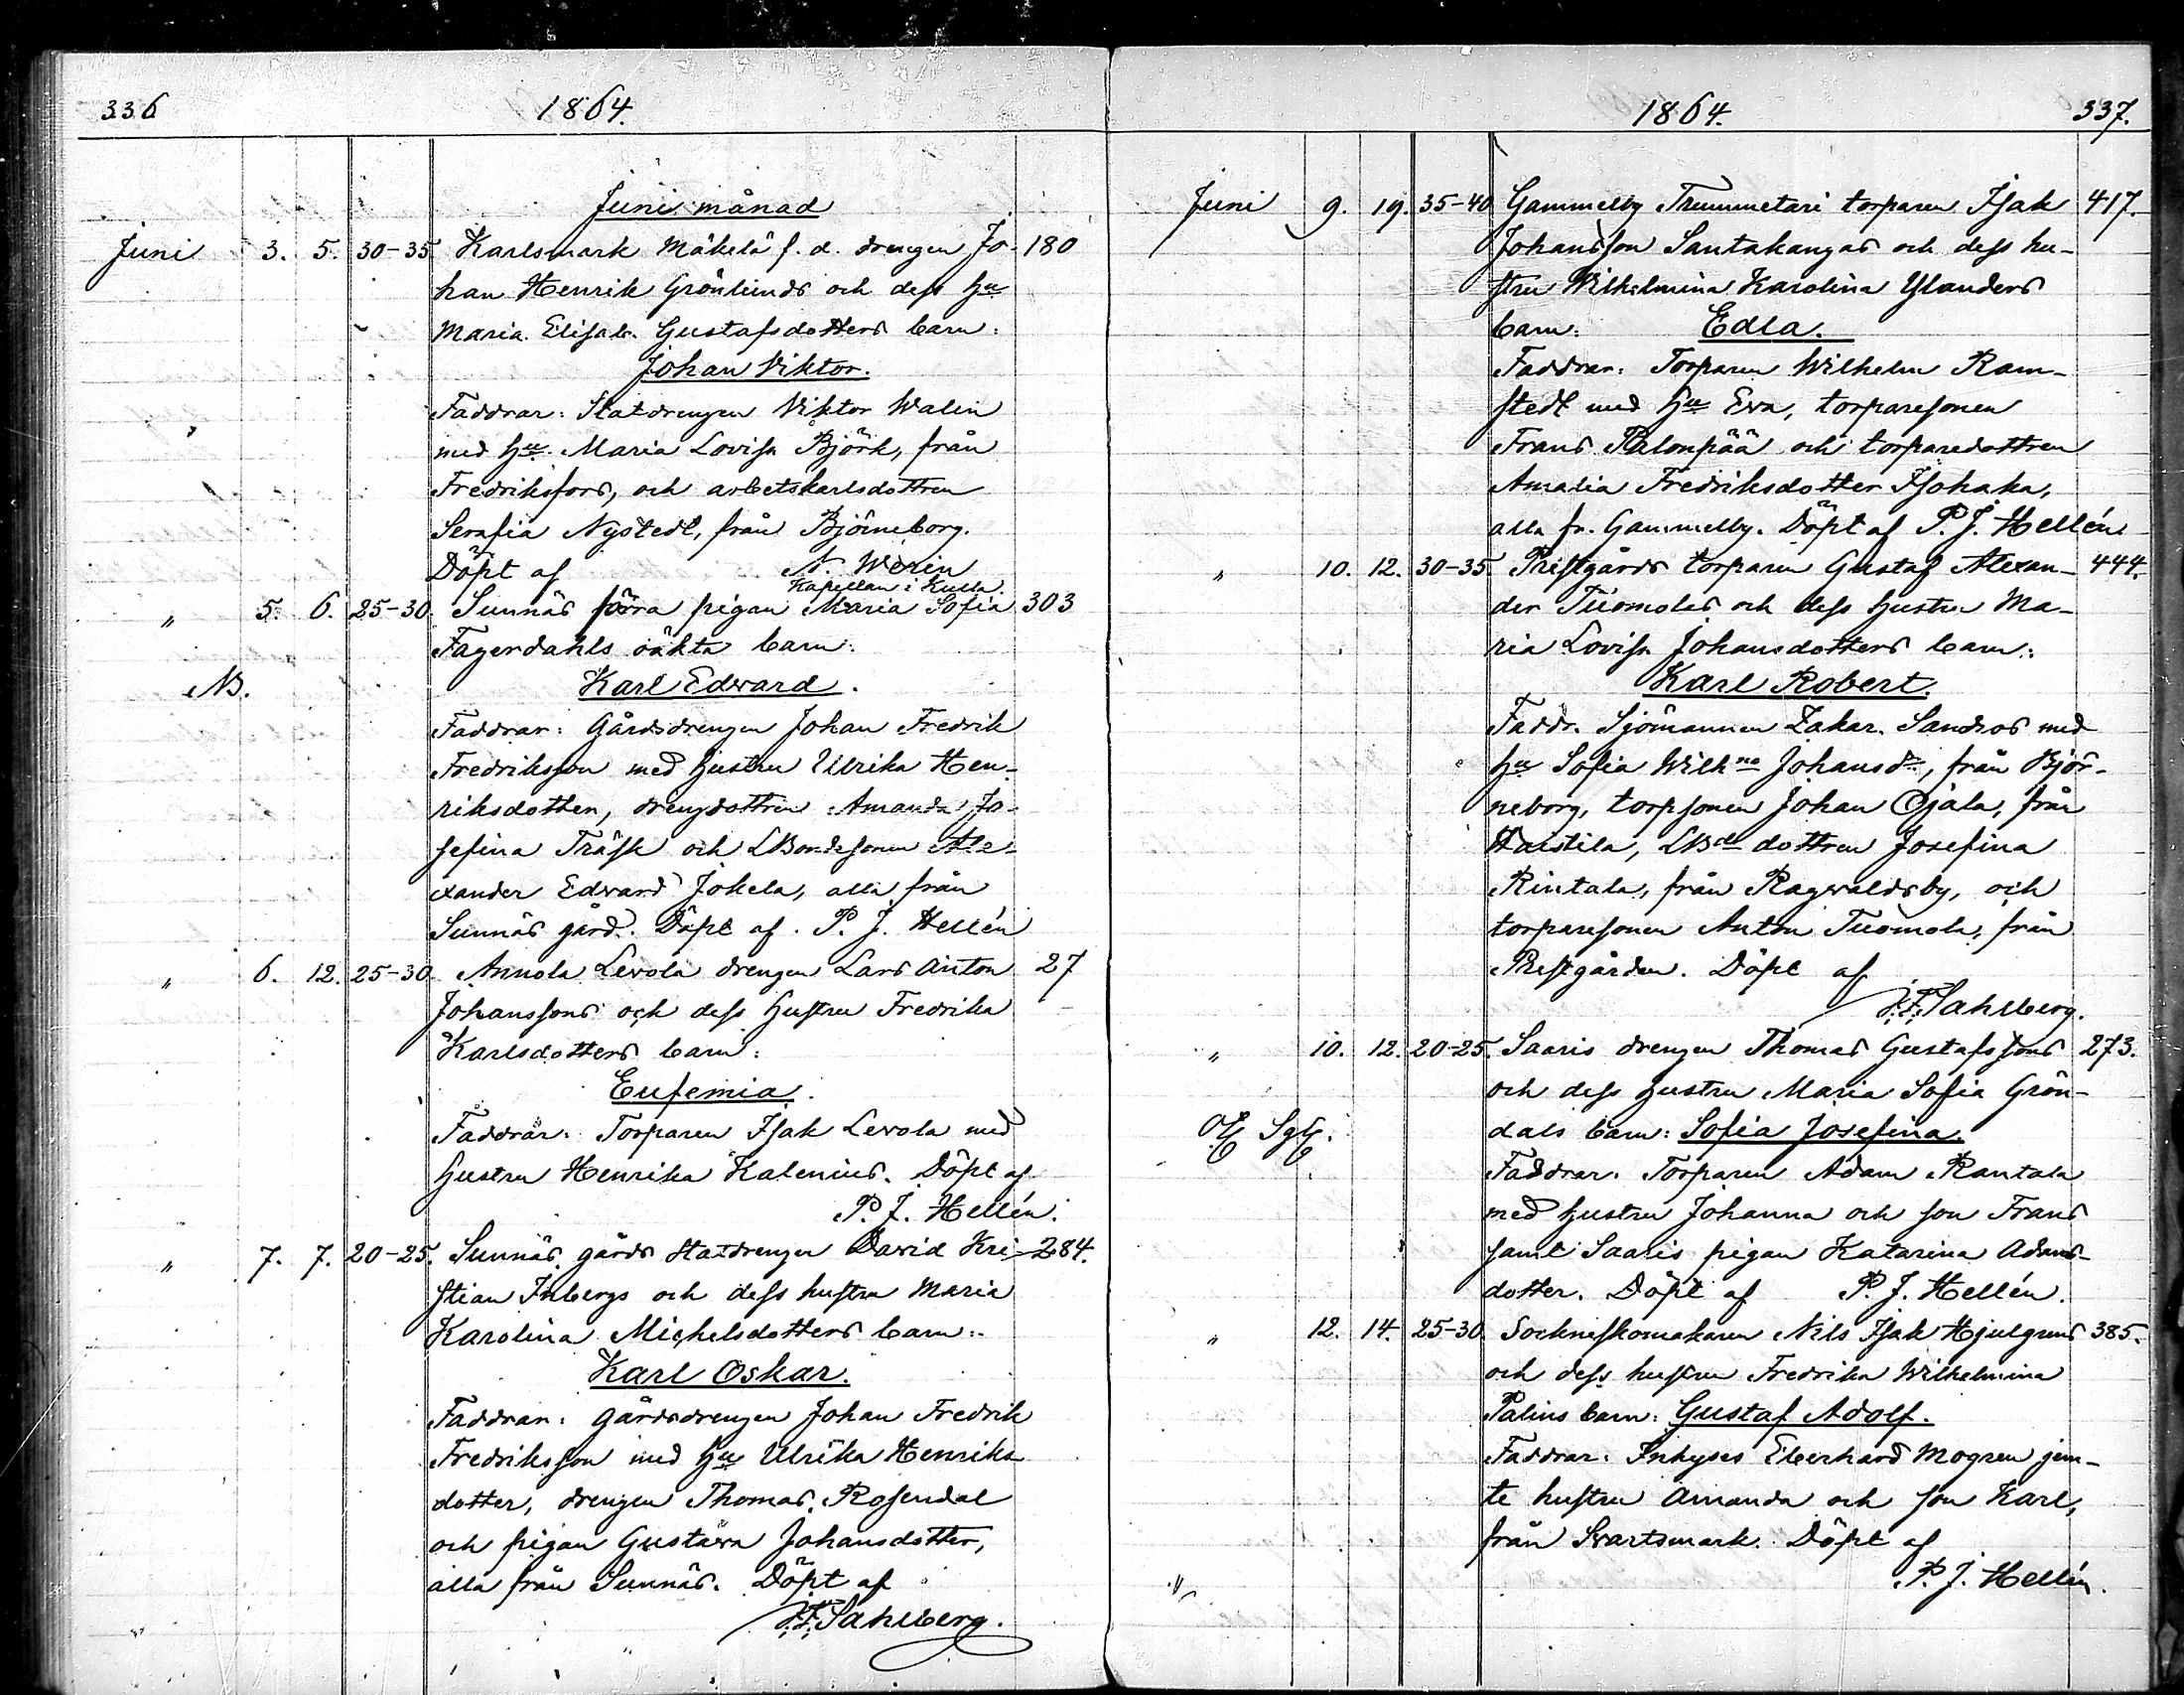 336 1864.
Juni månad
Juni 3. 5. 30-35 Karlsmark Mäkelä f. d. drengen Jo- 180
han Henrik Grönlunds och dess Hu
Maria Elisab. Gustafsdotters barn:
Johan Viktor.
Faddrar: Statdrengen Viktor Walin
med Hu Maria Lovisa Björk, från
Fredriksfors, och arbetskarlsdottren
Serafia Nystedt, från Björneborg.
Döpt af N. Werin
Kapellan i Kulla.
" 5. 6. 25-30. Sunnäs förra pigan Maria Sofia 303
Fagerdahls oäkta barn:
NB. Karl Edward.
Faddrar: Gårdsdrengen Johan Fredrik
Fredriksson med hustru Ulrika Hen-
riksdotter, drengdottren Amanda Jo-
sefina Träsk och LBondesonen Ale-
xander Edward Jokela, alla från
Sunnäs gård. Döpt af P. J. Hellén
" 6. 12. 25-30 Annola Levola drengen Lars Anton 27
Johanssons och dess hustru Fredrika
Karlsdotters barn:
Eufemia.
Faddrar: Torparen Isak Levola med
hustru Henrika Kalenius. Döpt af
P. J. Hellén.
" 7. 7. 20-25. Sunnäs gårds statdrengen David Kri- 284.
stian Inbergs och dess hustru Maria
Karolina Michelsdotters barn:
Karl Oskar.
Faddrar: Gårdsdrengen Johan Fredrik
Fredriksson med Hu Ulrika Henriks-
dotter, drengen Thomas Rosendal
och pigan Gustava Johansdotter,
alla från Sunnäs. Döpt af
J. F. Sahlberg.
1864. 337.
Juni 9. 19. 35-40 Gammelby Trummetari torparen Isak 417.
Johansson Santakangas och dess hu-
stru Wilhelmina Karolina Ylanders
barn: Edla.
Faddrar: Torparen Wilhelm Ram-
stedt med Hu Eva, torparesonen
Frans Palonpää och torparedottren
Amalia Fredriksdotter Isohaka,
alla fr. Gammelby. Döpt af P. J. Hellén
" 10. 12. 30-35. Prestgårds torparen Gustaf Alexan- 444.
der Tuomolas och dess hustru Ma-
ria Lovisa Johansdotters barn:
Karl Robert.
Faddr. Sjömannen Zakar. Sandros med
Hu Sofia Wilhna Johansdr, från Björ-
neborg, torpsonen Johan Ojala, från
Haistila, LBde dottren Josefina
Rintala, från Ragwaldsby, och
torparesonen Anton Tuomola, från
Prestgården. Döpt af
J. F. Sahlberg.
" 10. 12. 20-25. Saaris drengen Thomas Gustafssons 273.
och dess hustru Maria Sofia Grön-
dals barn: Sofia Josefina.
Faddrar: Torparen Adam Rantala
med hustru Johanna och son Frans
samt Saaris pigan Katarina Adams-
dotter. Döpt af P. J. Hellén.
" 12. 14. 25-30 Sockneskomakaren Nils Isak Hjulgrens 385.
och dess hustru Fredrika Wilhelmina
Palins barn: Gustaf Adolf.
Faddrar: Inhyses Eberhard Mogren jem-
te hustru Amanda och son Karl,
från Svartsmark. Döpt af
P. J. Hellén.
"